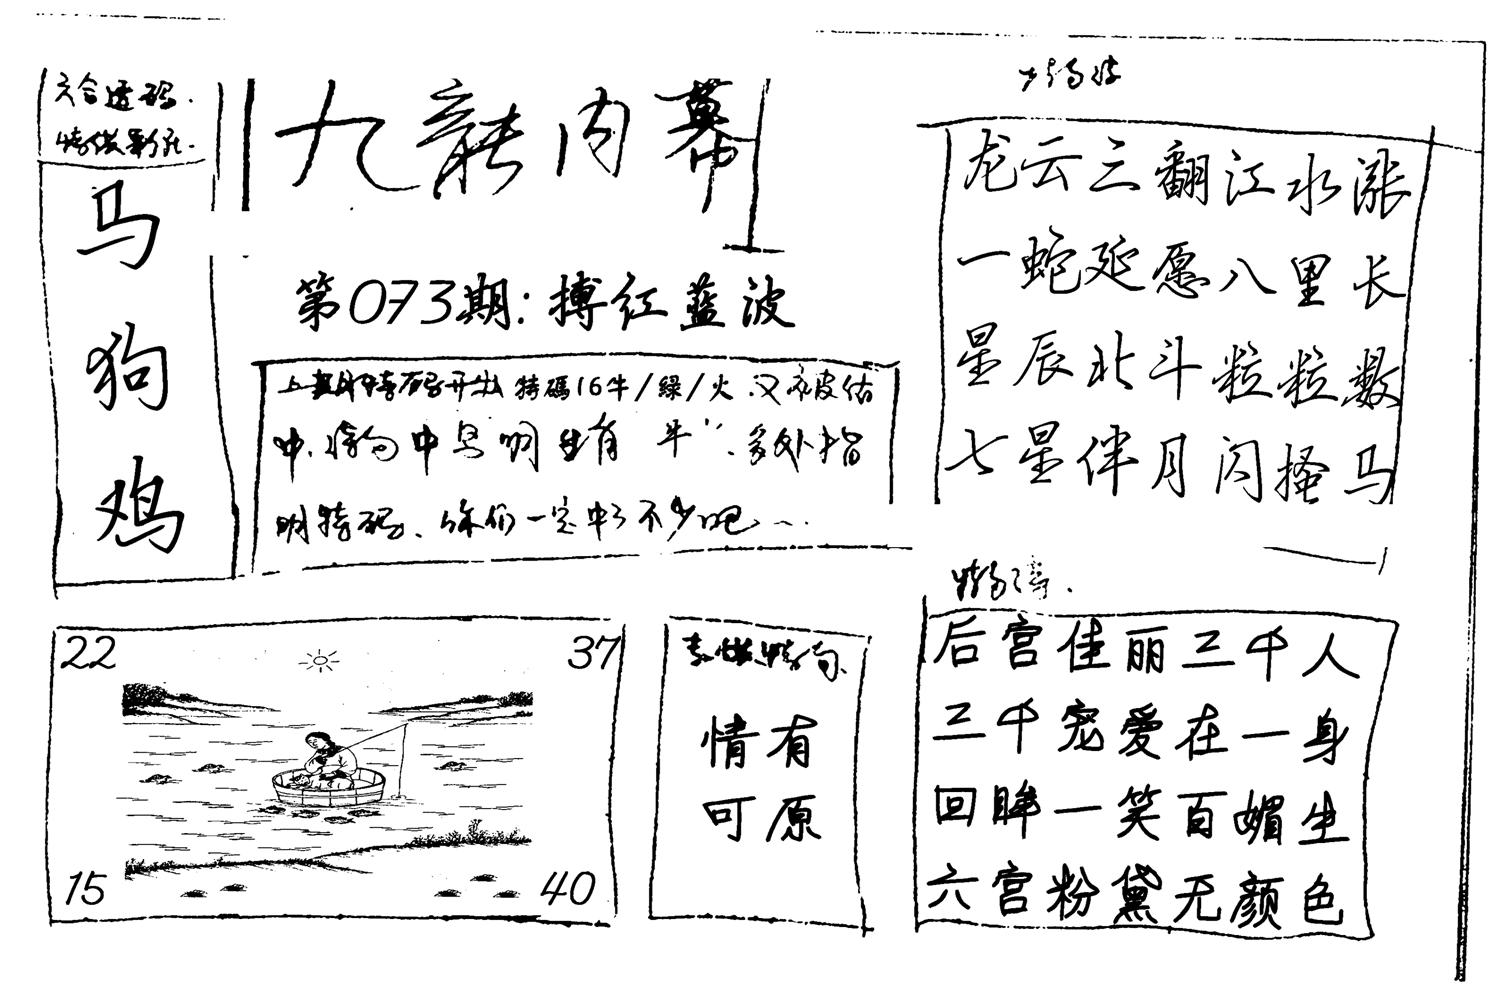 六合透码.
马
狗
鸡
九龍内幕
第073期:搏红蓝波
上期特码开出 特碼16牛/綠/火.又被估
中.特句中早明生肖"牛".多外指
明特码、你们一定中了不少吧...
龙云三翻江水涨
一蛇延愿八里长
星辰北斗粒粒数
七星伴月闪搔马
后宫佳丽三千人
三千宠爱在一身
回眸一笑百媚生
六宫粉黛无颜色
22
37
15
40
情有
可原